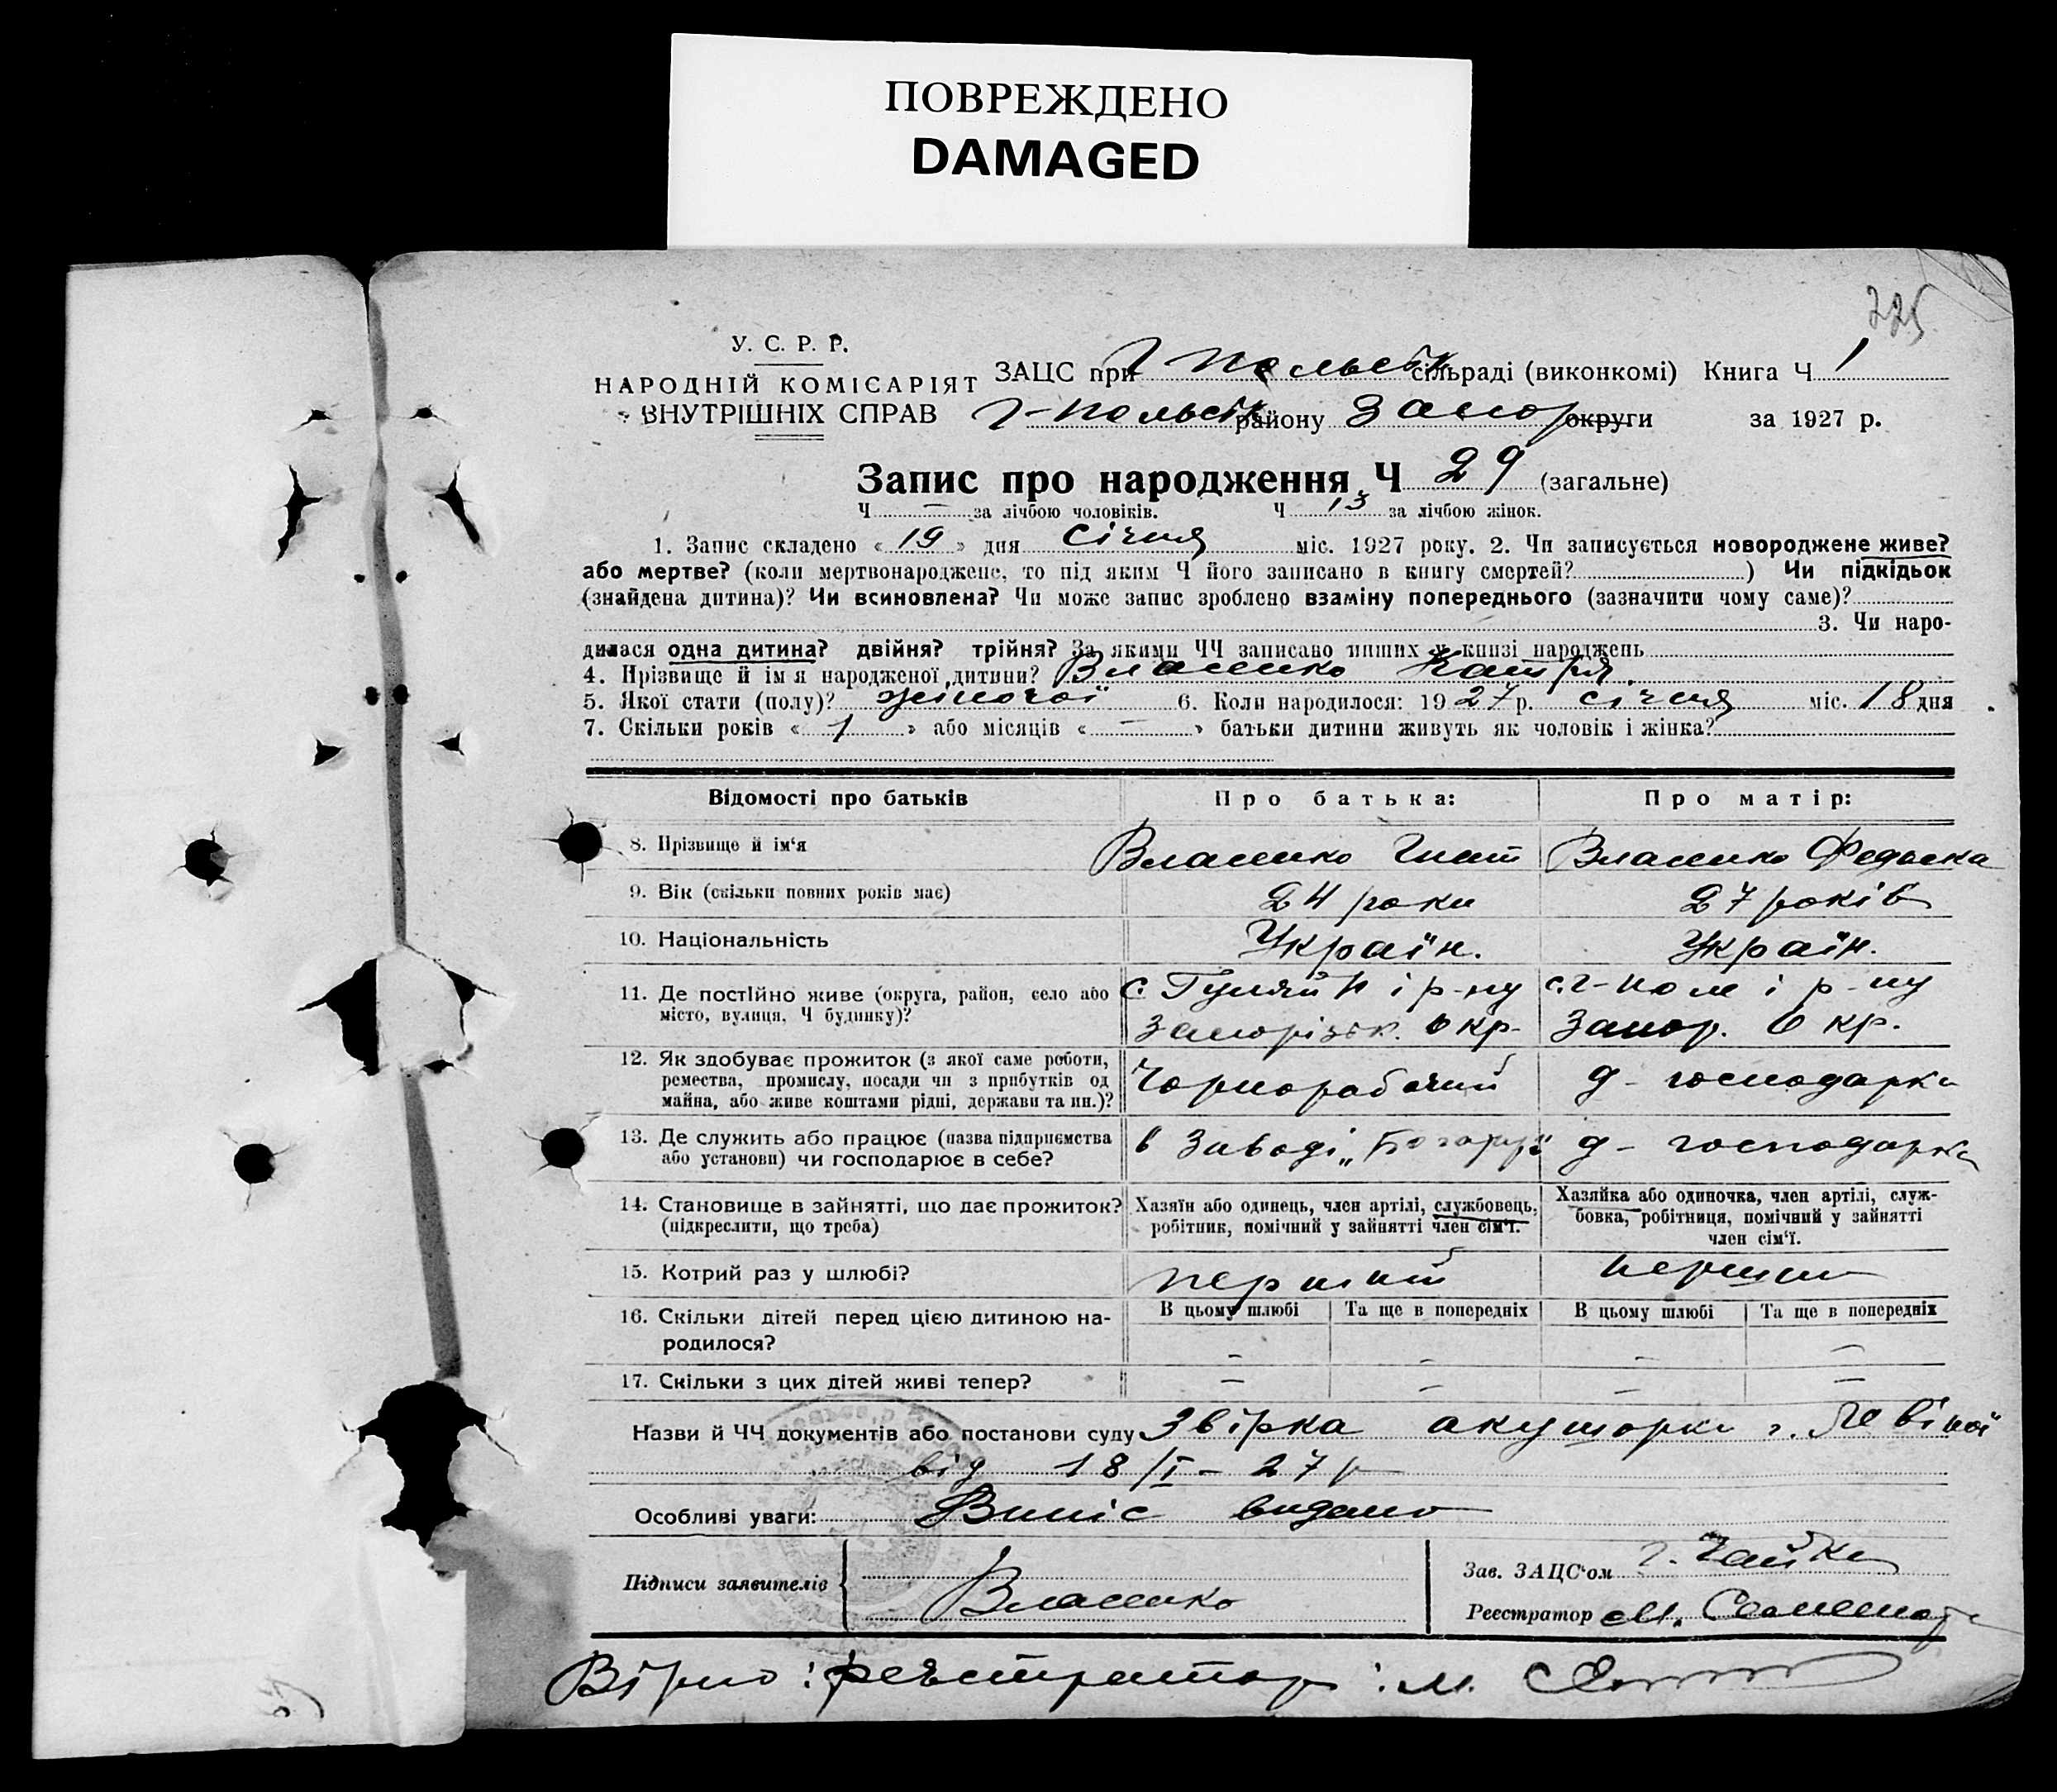 ПОВРЕЖДЕНО
DAMAGED
225
У. С. Р. Р.
НАРОДНІЙ КОМІСАРІЯТ
ВНУТРІШНІХ СПРАВ
ЗАЦС при Г Польськ сільраді (виконкомі) Книга Ч 1
Г-Польськ району Запор округи за 1927 р.
Запис про народження Ч 29 (загальне)
Ч — за лічбою чоловіків. Ч 13 за лічбою жінок.
1. Запис складено « 19 » дня Січня міс. 1927 року. 2. Чи записується новороджене живе?
або мертве? (коли мертвонароджене, то під яким Ч його записано в книгу смертей? ) Чи підкідьок
(знайдена дитина)? Чи всиновлена? Чи може запис зроблено взаміну попереднього (зазначити чому саме)?
3. Чи наро-
дилася одна дитина? двійня? трійня? За якими ЧЧ записано инших у книзі народжень
4. Прізвище й ім я народженої дитини? Власенко Катря.
5. Якої стати (полу)? жіночої 6. Коли народилося: 1927 р. січня міс. 18 дня
7. Скільки років « 1 » або місяців « — » батьки дитини живуть як чоловік і жінка?
Відомості про батьків Про батька: Про матір:
8. Прізвище й ім‘я Власенко Гнат Власенко Федоска
9. Вік (скільки повних років має) 24 роки 27 років
10. Національність Україн. Україн.
11. Де постійно живе (округа, район, село або с. Гуляй П і р-ну с. Г-Поле і р-ну
місто, вулиця, Ч будинку)? Запорізьк. Окр. Запор. Окр.
12. Як здобуває прожиток (з якої саме роботи,
ремества, промислу, посади чи з прибутків од Чорноробочий д-господарка
майна, або живе коштами рідні, держави та ин.)?
13. Де служить або працює (назва підприємства в Заводі д-господарка
або установи) чи господарює в себе?
14. Становище в зайнятті, що дає прожиток? Хазяїн або одинець, член артілі, службовець, Хазяйка або одиночка, член артілі, служ-
(підкреслити, що треба) робітник, помічний у зайнятті член сім‘ї. бовка, робітниця, помічний у зайнятті
член сім‘ї.
15. Котрий раз у шлюбі? перший перший
16. Скільки дітей перед цією дитиною на- В цьому шлюбі Та ще в попередніх В цьому шлюбі Та ще в попередніх
родилося? — — — —
17. Скільки з цих дітей живі тепер? — — — —
Назви й ЧЧ документів або постанови суду Звірка акушорки г. Левіної
від 18/I-27р
Особливі уваги: Випіс видано
Підписи заявителів Власенко
Зав. ЗАЦС‘ом Г. Чайка
Реєстратор М.
Вірно: реєстратор: М.